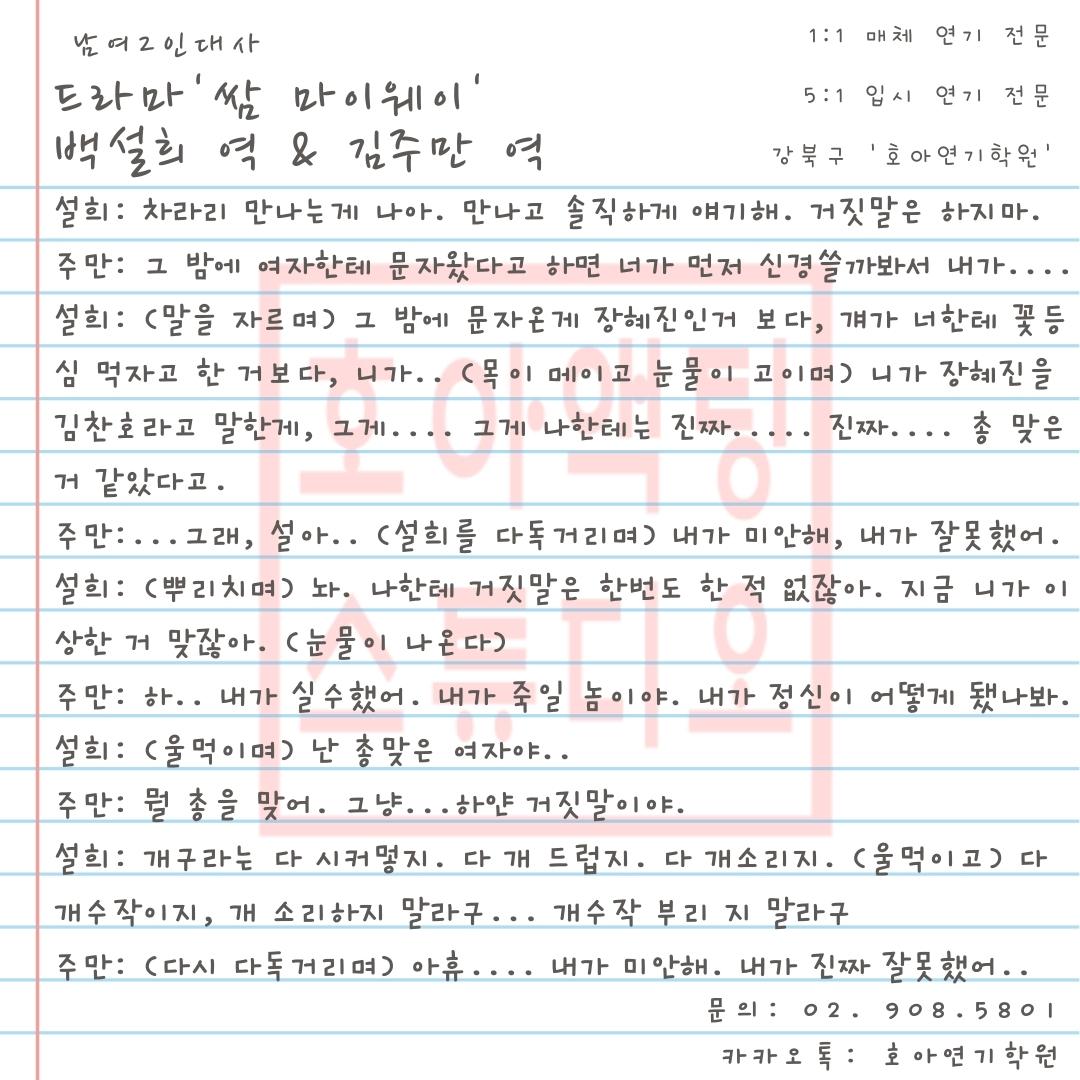 남여2인대사
1:1 매체 연기 전문
드라마'쌈 마이웨이'
5:1 입시 연기 전문
백설희 역 & 김주만 역
강북구 '호아연기학원'
설희: 차라리 만나는게 나아. 만나고 솔직하게 얘기해. 거짓말은 하지마.
주만: 그 밤에 여자한테 문자왔다고 하면 너가 먼저 신경쓸까봐서 내가....
설희: (말을 자르며) 그 밤에 문자온게 장혜진인거 보다, 걔가 너한테 꽃등
심 먹자고 한 거보다, 니가.. (목이 메이고 눈물이 고이며) 니가 장혜진을
김찬호라고 말한게, 그게.... 그게 나한테는 진짜..... 진짜.... 총 맞은
거 같았다고.
주만:...그래, 설아.. (설희를 다독거리며) 내가 미안해, 내가 잘못했어.
설희: (뿌리치며) 놔. 나한테 거짓말은 한번도 한 적 없잖아. 지금 니가 이
상한 거 맞잖아. (눈물이 나온다)
주만: 하.. 내가 실수했어. 내가 죽일 놈이야. 내가 정신이 어떻게 됐나봐.
설희: (울먹이며) 난 총맞은 여자야..
주만: 뭘 총을 맞어. 그냥...하얀 거짓말이야.
설희: 개구라는 다 시커멓지. 다 개 드럽지. 다 개소리지. (울먹이고) 다
개수작이지, 개 소리하지 말라구... 개수작 부리 지 말라구
주만: (다시 다독거리며) 아휴.... 내가 미안해. 내가 진짜 잘못했어..
문의: 02. 908.5801
카카오톡: 호아연기학원
호아액팅
스튜디오